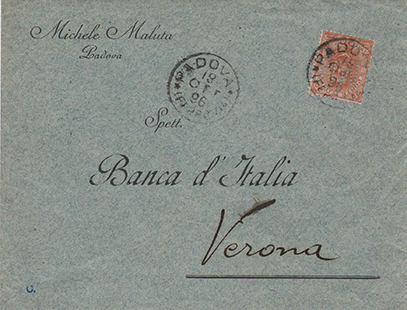 Michele Maluta
Padova
PADOVA
19
OTT
96
PADOVA
Spett.
Banca d'Italia
Verona
C.